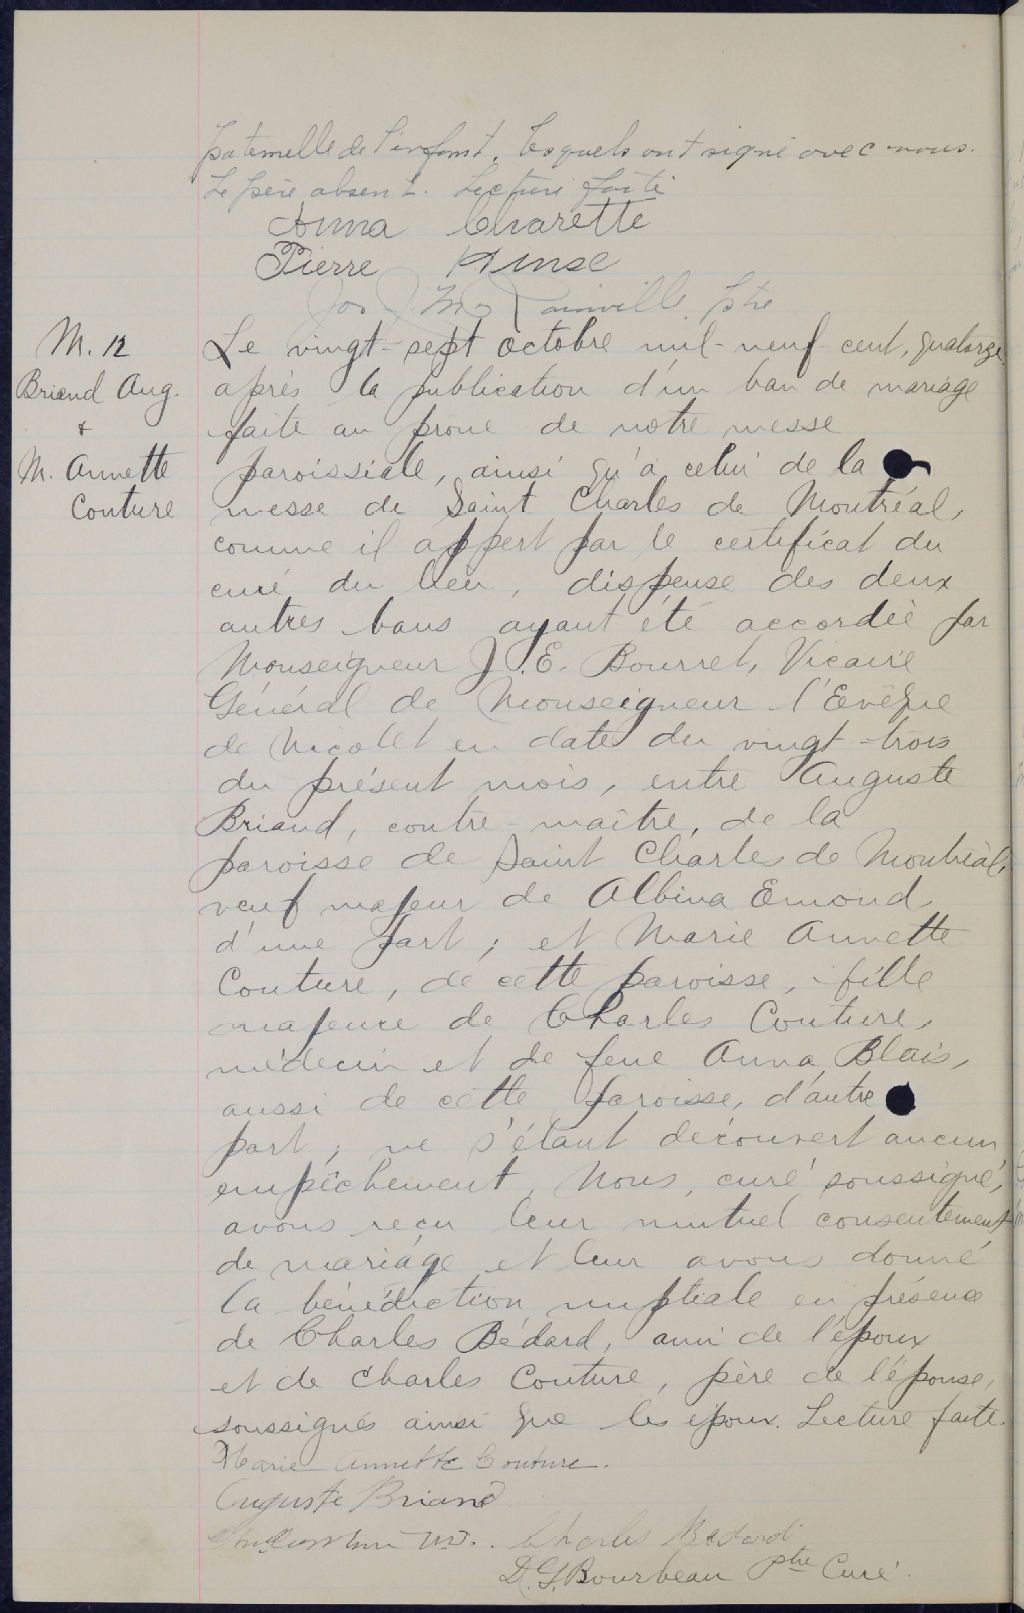 paternelle de l'enfant, lesquels ont signé avec nous.
Le père absent. Lecture faite
Anna Charette
Pierre Hinse
Jos J. Rainville, Ptre
M. 12
Briand Aug.
+
M. Annette
Couture
Le vingt-sept octobre mil-neuf-cent, quatorze
après la publication d'un ban de mariage
faite au prône de notre messe
paroissiale, ainsi qu'à celui de la
messe de Saint Charles de Montréal,
comme il appert par le certificat du
curé du lieu, dispense des deux
autres bans ayant été accordée par
Monseigneur J. E. Bourret, Vicaire
Général de Monseigneur l'Evêque
de Nicolet en date du vingt-trois
du présent mois, entre Auguste
Briand, contre-maître, de la
paroisse de Saint Charles de Montréal,
veuf majeur de Albina Emond
d'une part; et Marie Annette
Couture, de cette paroisse, fille
majeure de Charles Couture,
médecin et de feue Anna Blais,
aussi de cette paroisse, d'autre
part; ne s'étant découvert aucun
empêchement, Nous, curé soussigné,
avons reçu leur mutuel consentement
de mariage et leur avons donné
la bénédiction nuptiale en présence
de Charles Bédard, ami de l'époux
et de Charles Couture, père de l'épouse,
soussignés ainsi que les époux. Lecture faite.
Marie Annette Couture.
Auguste Briand
M.D. Charles Bédard
D. G. Bourbeau Ptre Curé.